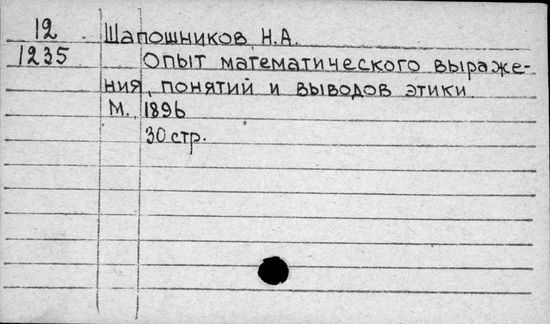 12 Шапошников, Н.А.
1235 Опыт математического выраже-
ния, понятий и выводов этики
М., 1896
30 стр.